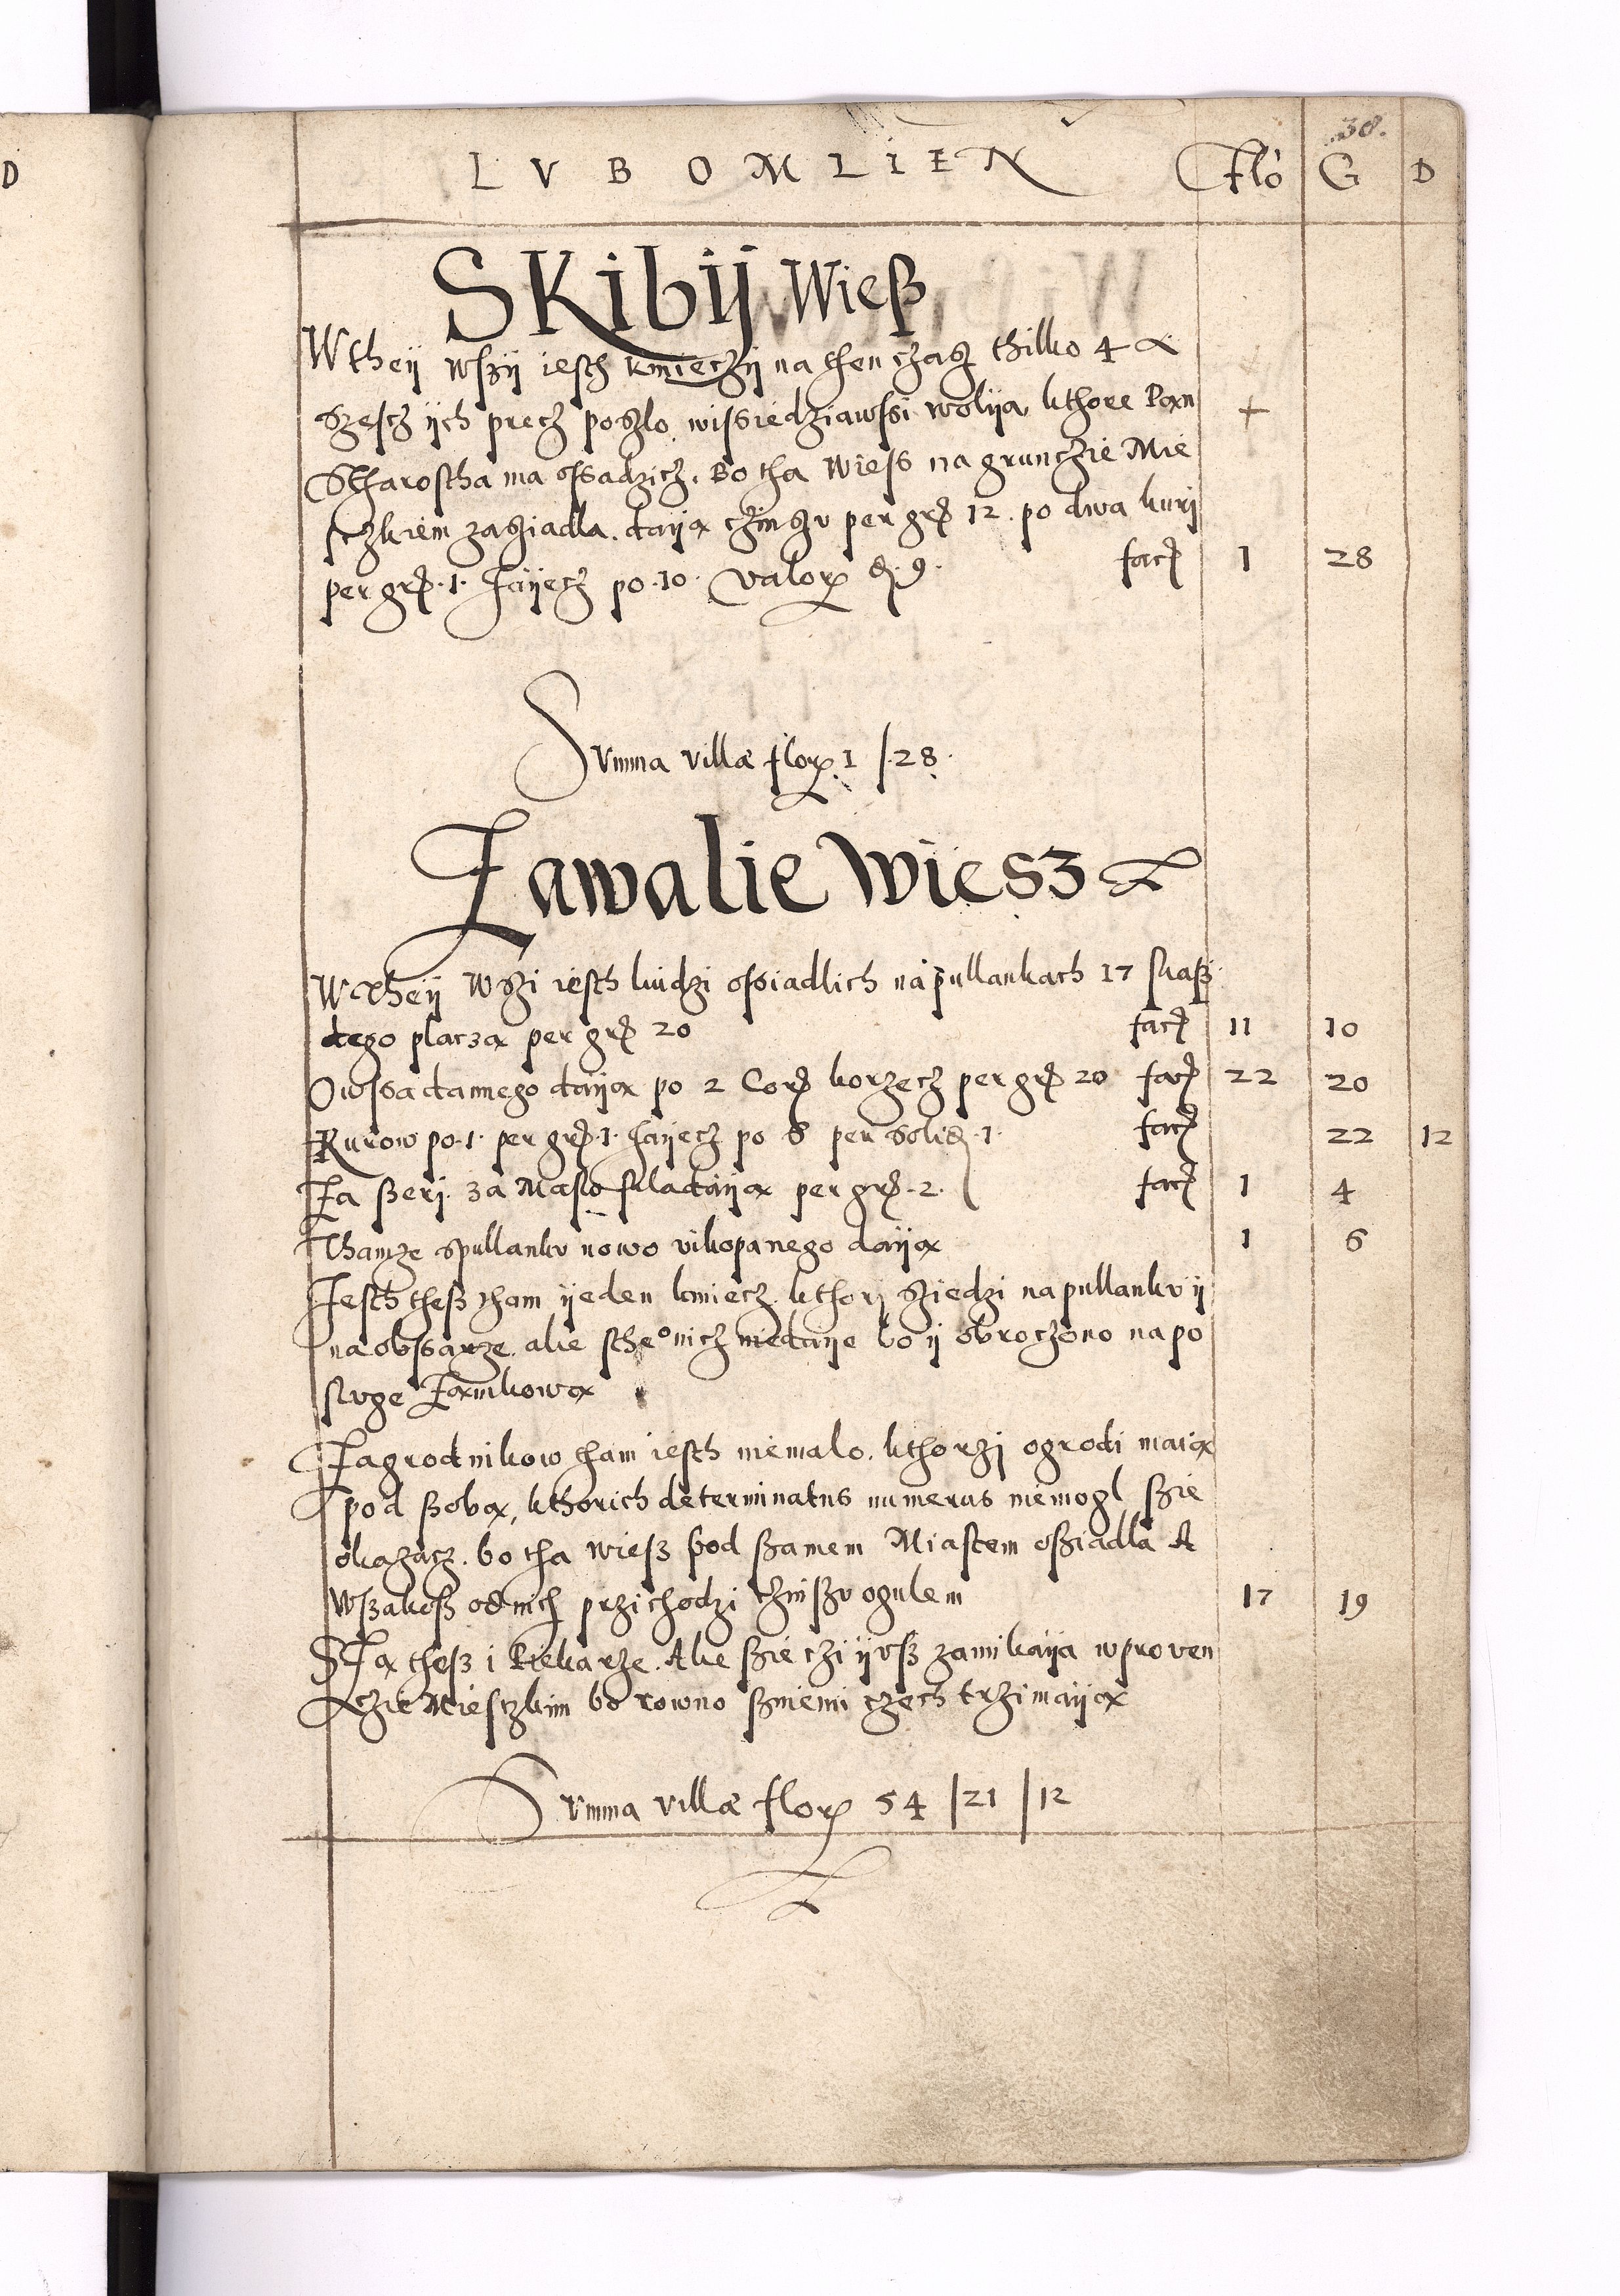 D
38.
LVBOMLIEN Flo G D
SKibij Wieß
W theij wszij iesth kmieczij na then czasz thilko 4 A
Szescz ijch precz poszlo wissiedziawssi wolija kthore Pan
Stharostha ma ossadzicz. Bo tha Wiess na grunczie Mie
sczkiem zasziadla. daija czinszu per gr 12. po dwa kurij
per gr. 1. Jaijecz po. 10. valor d. 9. facit 1 28
Summa villæ flor 1 / 28.
Zawalie Wiesz
W Theij Wszi iesth ludzi ossiadlich na pullankach 17 s kasz
dego placza per gr 20 facit 11 10
Owssa dannego daija po 2 Cor korzecz per gr 20 facit 22 20
Kurow po. 1. per gr. 1. Jaijecz po 6 per solid. 1. facit 22 12
Za Serj. za Maslo skladaija per gr. 2. facit 1 4
Thamze spullanku nowo vikopanego daija 1 6
Jesth thesz tham ijeden kmiecz kthorj sziedzi na pullanku ij
na obszarze. alie sthego nicz niedaije bo ij obroczono na po
sluge Zamkowa
Zagrodnikow tham iesth niemalo. kthorzj ogrodi maia
pod szoba, kthorich determinatus numerus niemogl szie
okazacz. bo tha wiesz pod szamem Miastem osziadla A
wszakosz od nich przichodzi czinszu ogulem 17 19
Sza thesz i Piekarze. Alie szie czi ijusz zamikaija w proven
czie Miesczkim bo rowno szniemi czech trzimaija
Summa villæ flor 54 / 21 / 12